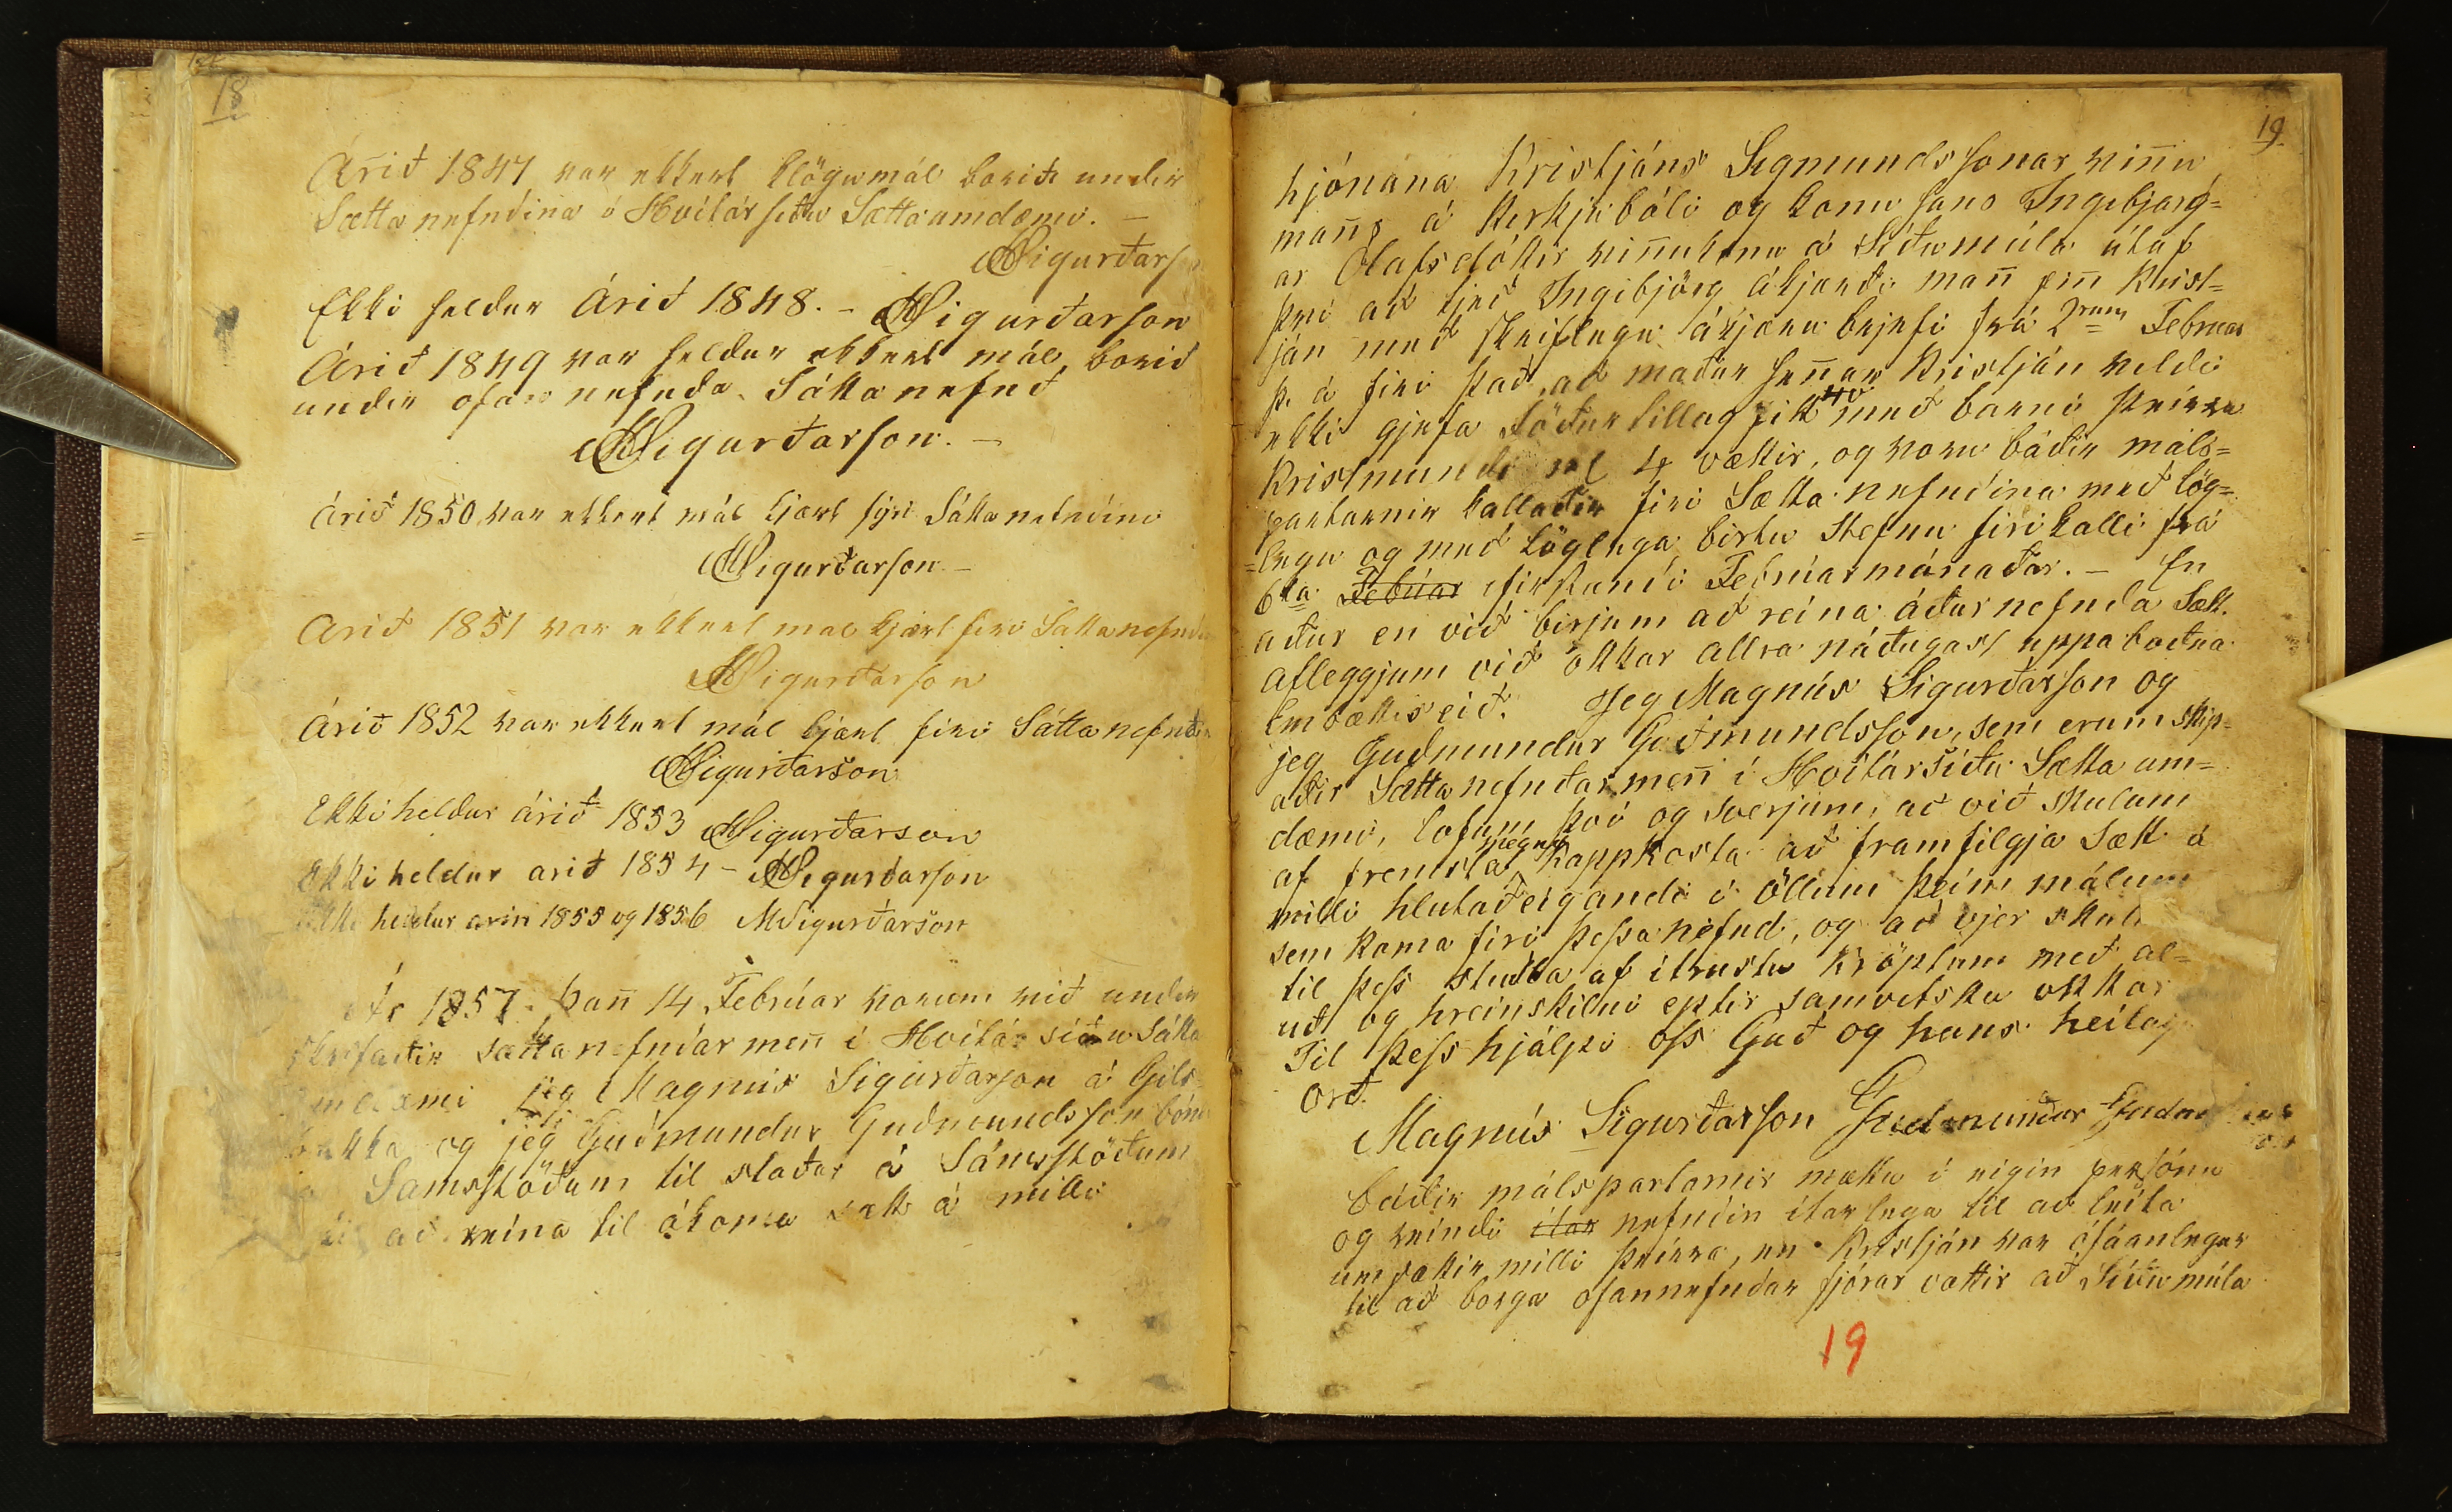 18
Árið 1847 var ekkert klögumál borið undir
Sættanefndina í Hvítársíðu Sættaumdæmi. –
MSigurðarson
Ekki heldur Árið 1848. – MSigurðarson
Árið 1849 var heldur ekkert mál borið
undir ofannefnda Sáttanefnd
MSigurðarson. –
Árið 1850 var ekkert mál kjært fyri Sáttanefndina
MSigurðarson –
Arið 1851 var ekkert mál kjært firi Sáttanefndina
MSigurðarson
Árið 1852 var ekkert mál kjært firi Sáttanefndina
MSigurðarson
Ekki heldur árið 1853 MSigurðarson
Ekki heldur arið 1854 – MSigurðarson
Ekki heldur arin 1855 og 1856 MSigurðarson
Ár 1857. Þan̄ 14 Febrúar vorum við under
skrifaðir sættanefndarmen̄ í Hvítársíðu Sátta
umdæmi jeg Magnús Sigurðarson á Gils-
bakka og jeg Guðmundur Guðmundsson bóndi
á Samsstöðum til staðar á Sámsstöðum
til að reina til ákoma sætt á milli
19
hjónana Kristjáns Sigmundssonar vin̄u
man̄s á Kirkjubóli og konu hans Ingibjarg=
ar Olafsdóttir vin̄ukonu á Síðumúla útaf
því að tjeð Ingibjörg ákjærði man̄ sin̄ Krist=
ján með skriflegu ákjæru brjefi frá 2rum Februar
þ. á firi það, að maður hen̄ar Kristján vildi
ekki gjefa föðurtillag sitt með barni þeirra
Kristmundi 4 vættir, og voru báðir máls=
partarnir kallaðir firi Sættanefndina með lög=
=legu og með löglega birtu Stefnu firikalli frá
6ta Febúar ifirstandi Febrúarmánaðar. – En
aður en við birjum að reina áðurnefnda Sætt.
afleggjum við okkar allra náðugast uppáboðna
Embættiseið. Jeg Magnús Sigurðarson og
jeg Guðmundur Guðmundsson, sem erum skip=
aðir Sættanefndarmen̄ í Hvítársíðu Sætta um=
dæmi, lofum því og sverjum, að við skulum
af fremsta megni kappkosta að framfilgja Sætt á
milli hlutaðeigandi í öllum þeim málum
sem koma firi þessa nefnd, og að vjer skulum
til þess stuðla af ítrustu kröptum með al=
úð og hreinskilni eptir samvitsku okkar
Til þess hjálpi oss Guð og hans heilaga
Orð.
Magnús Sigurðarson Guðmundur Guðmundsson
báðir málspartarnir mættu í eigin persónu
og reindi ítar nefndin ítarlega til að leita
um sættir milli þeirra, en Kristján var ófáanlegur
til að borga ofannefndar fjórar vættir að Síðumúla
19